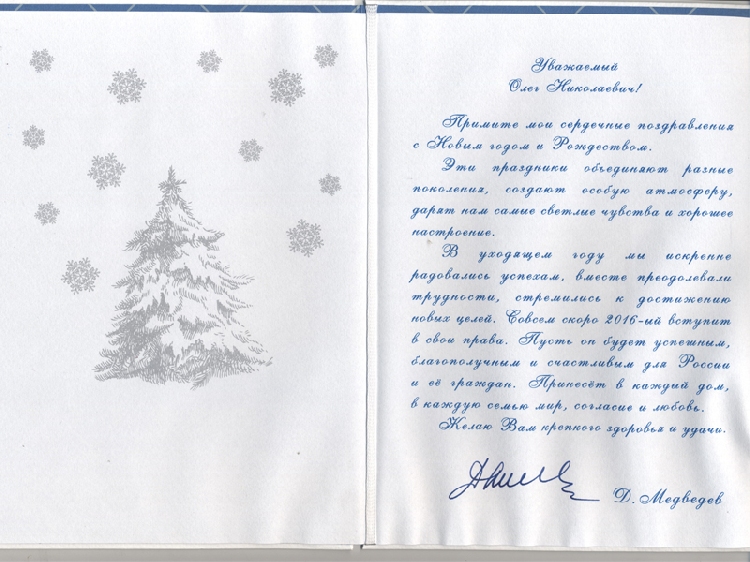 Уважаемый
Олег Николаевич!
Примите мои сердечные поздравления
с Новым годом и Рождеством.
Эти праздники объединяют разные
поколения, создают особую атмосферу,
дарят нам самые светлые чувства и хорошее
настроение.
В уходящем году мы искренне
радовались успехам, вместе преодолевали
трудности, стремились к достижению
новых целей. Совсем скоро 2016-ый вступит
в свои права. Пусть он будет успешным,
благополучным и счастливым для России
и её граждан. Принесёт в каждый дом,
в каждую семью мир, согласие и любовь.
Желаю Вам крепкого здоровья и удачи.
Д. Медведев